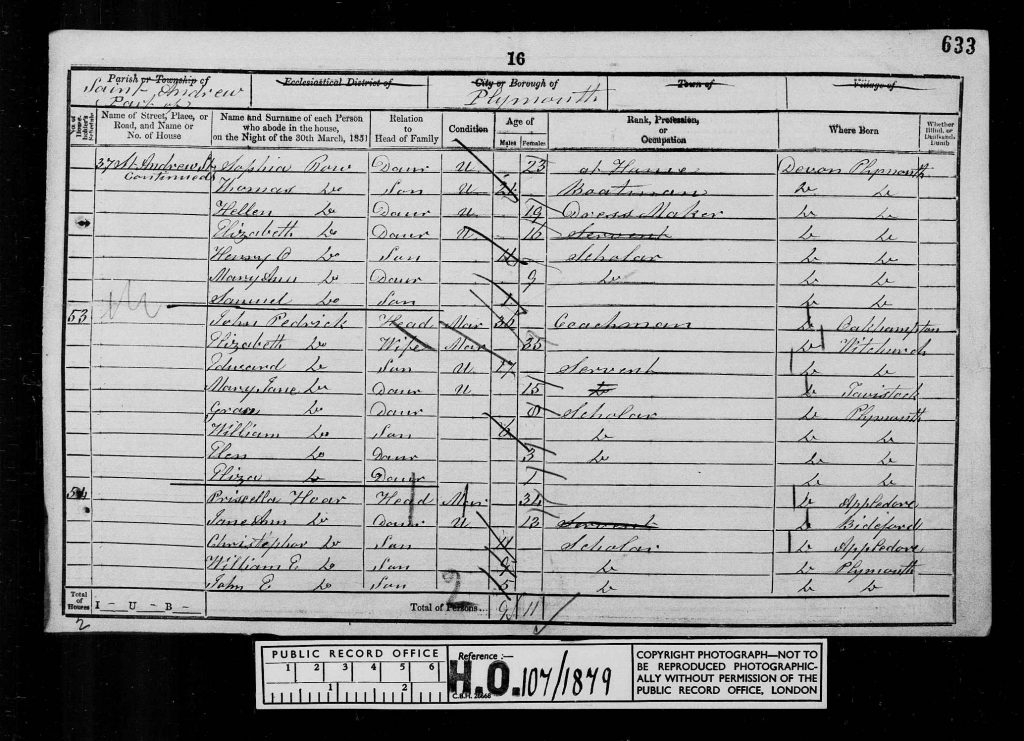 633
16
Parish or Township of Saint Andrew Part of
Ecclesiastical District of
City or Borough of Plymouth
Town of
Village of
Name of Street, Place, or Road, and Name or No. of House
Name and Surname of each Person who abode in the house, on the Night of the 30th March, 1851
Relation to Head of Family
Condition
Age of
Males Females
Rank, Profession, or Occupation
Where Born
Whether Blind, or Deaf-and-Dumb
37 St. Andrew St Continued Sophia Row Daur U 23 at Home Devon Plymouth
Thomas Do Son U 21 Boatman Do Do
Hellen Do Daur U 19 Dress Maker Do Do
Elizabeth Do Daur U 16 Servent Do Do
Henry O Do Son Scholar Do Do
Mary Ann Do Daur 9 Do Do Do
Samuel Do Son Do Do
53 John Pedrick Head Mar Coachman Do Oakhampton
Elizabeth Do Wife Mar 35 Do Witchurch
Edward Do Son U 17 Servent Do Do
Mary Jane Do Daur U 15 Do Do Tavistock
Grace Do Daur 8 Scholar Do Plymouth
William Do Son 6 Do Do Do
Elen Do Daur 3 Do Do Do
Eliza Do Daur 1 Do Do
54 Priscella Hoar Head Mar 34 Do Appledore
Jane Ann Do Daur U 13 Servent Do Bideford
Christopher Do Son 11 Scholar Do Appledore
William E Do Son 9 Do Do Plymouth
John E Do Son 5 Do Do Do
Total of Houses I - U - B - Total of Persons... 9 11
2
2
PUBLIC RECORD OFFICE
1 2 3 4 5 6
1 2
Reference :—
H.O. 107/1879
C.B.H. 26668
COPYRIGHT PHOTOGRAPH—NOT TO
BE REPRODUCED PHOTOGRAPHIC-
ALLY WITHOUT PERMISSION OF THE
PUBLIC RECORD OFFICE, LONDON